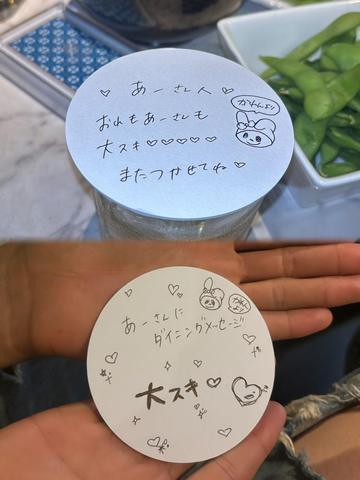 ♡ あーさん人 ♡
かれんより
おれもあーさんも
大スキ♡♡♡♡♡
またつかせてね♡
あーさんに
ダイニングメッセージ
大スキ♡